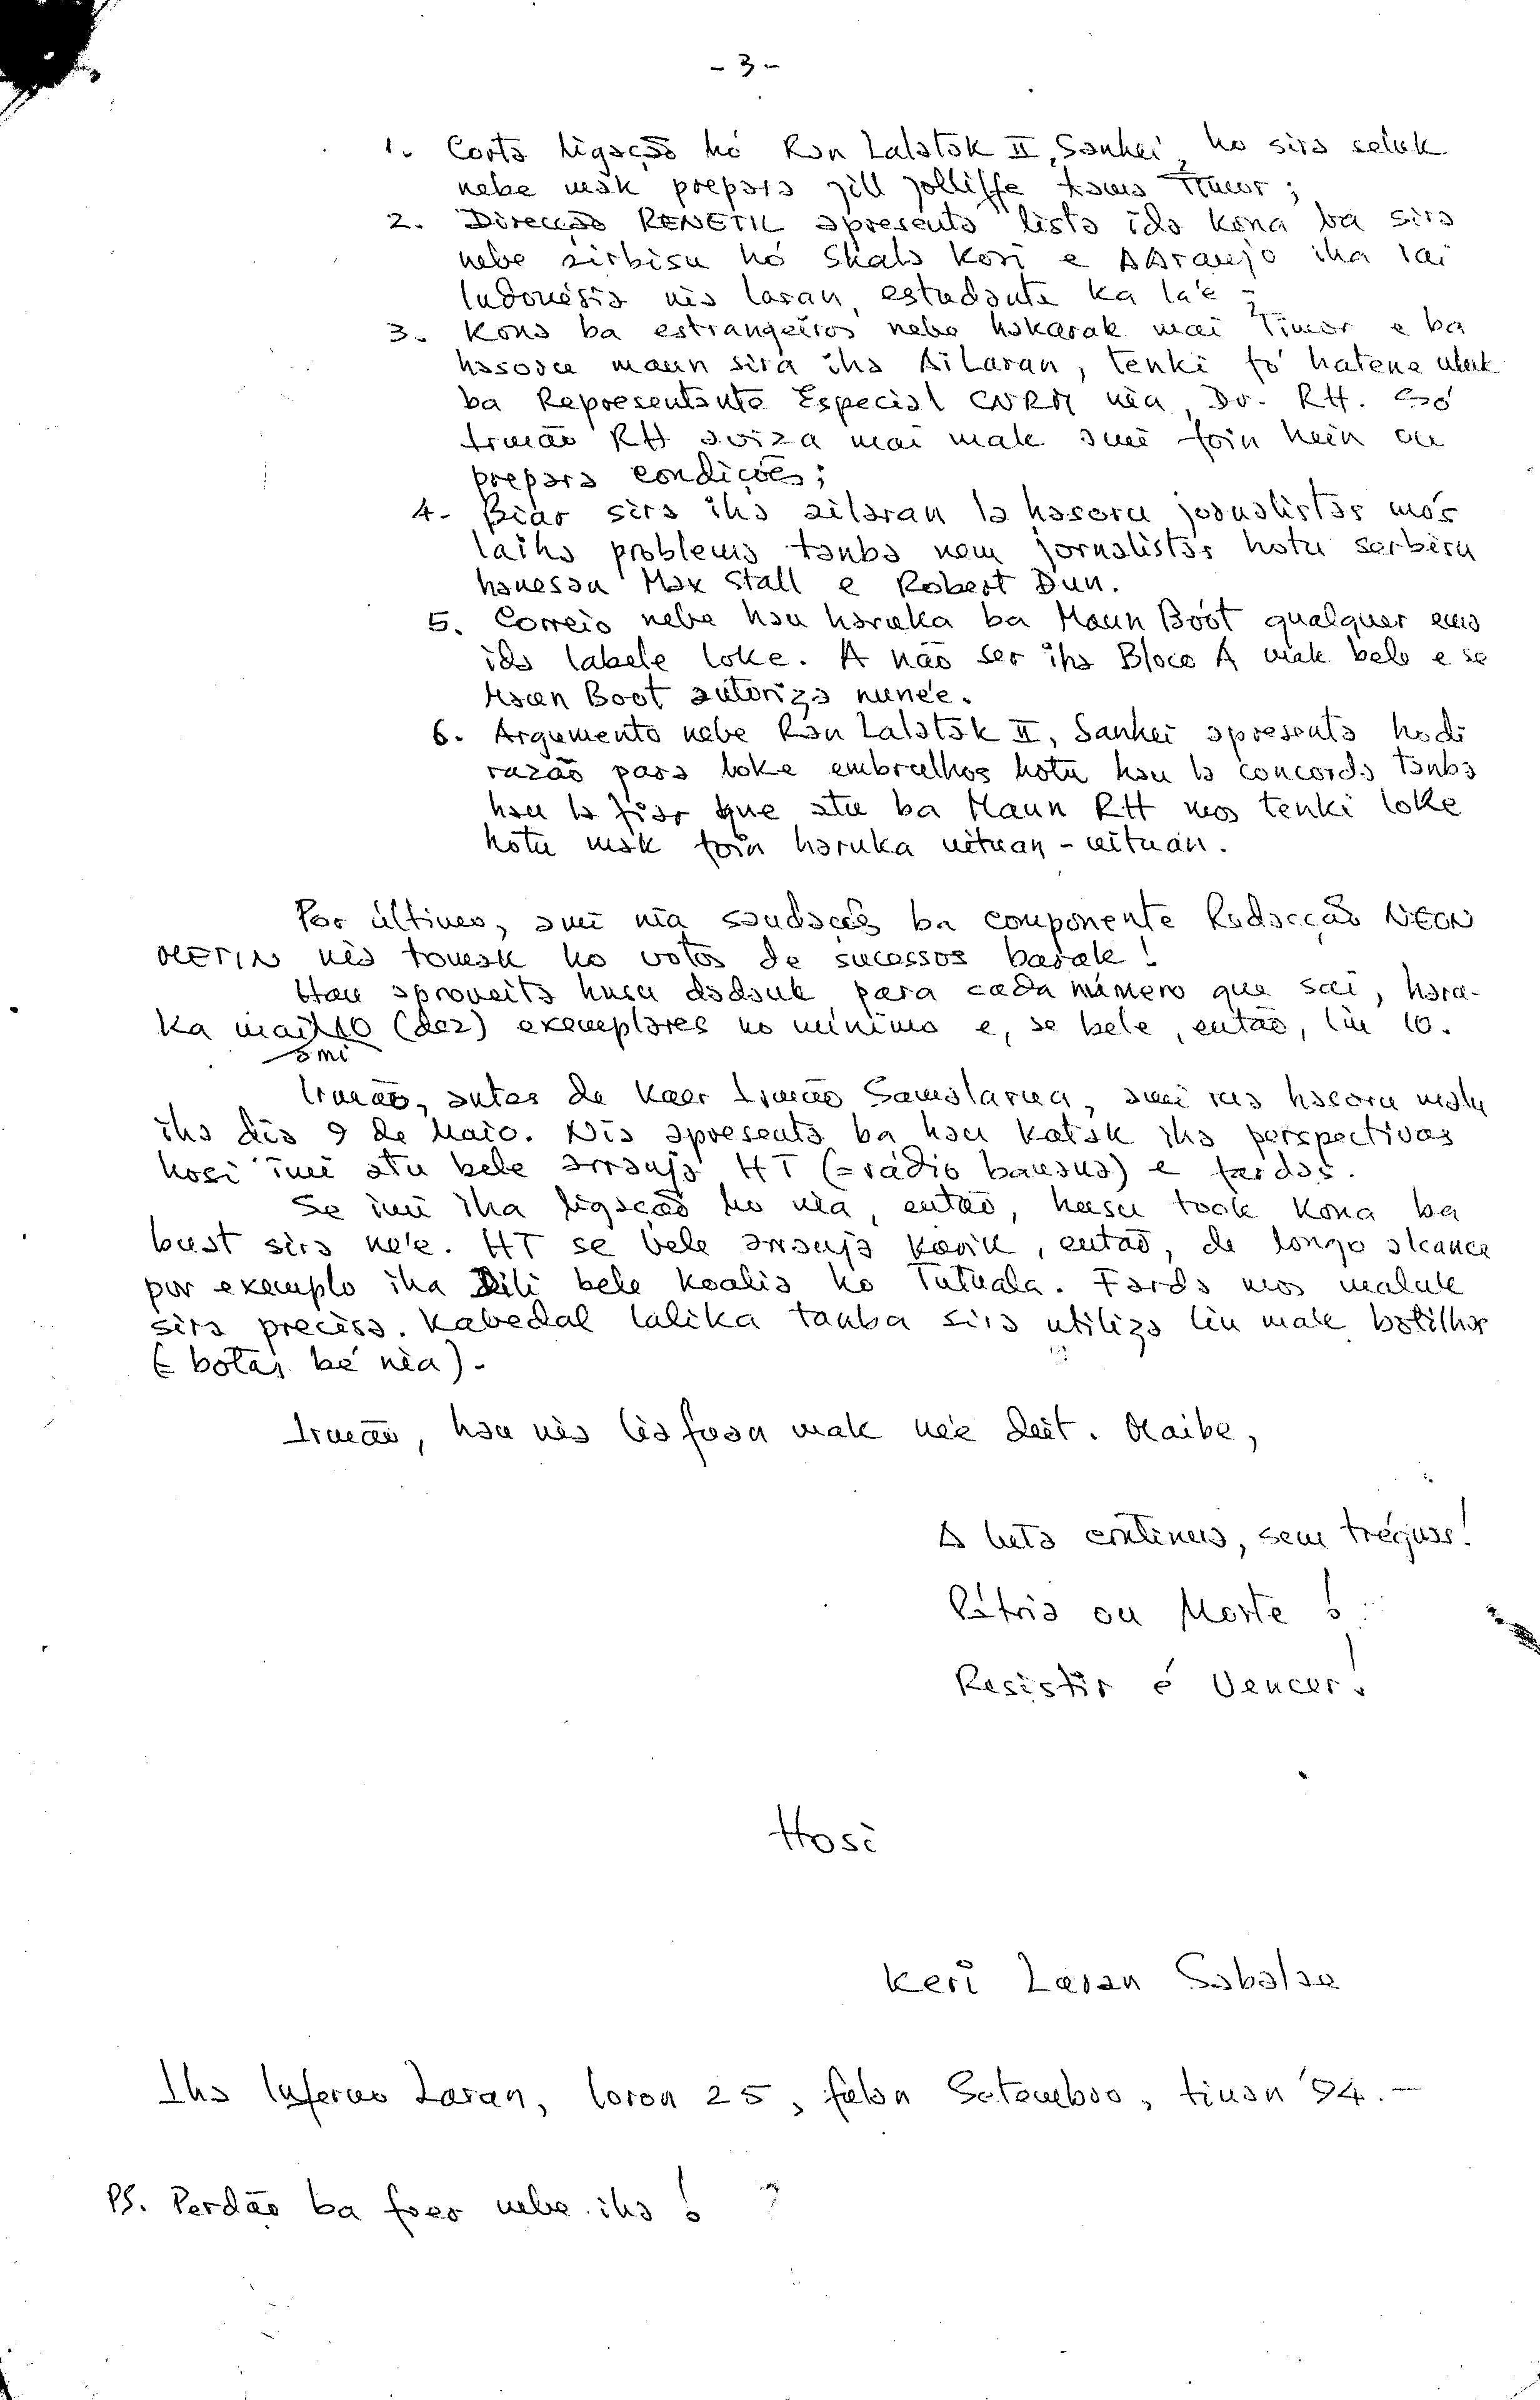 - 3 -
1. Corta ligação hó Ran Lalatak II, Sanhei, ho sira seluk
nebe mak prepara Jill Jolliffe tama Timor;
2. Direcção RENETIL apresenta lista ida kona ba sira
nebe sirbisu hó Shalo Kosi e AAraujo iha rai
Indonésia nia laran, estudante ka la'e;
3. Kona ba estrangeiros nebe hakarak mai Timor e ba
hasoru maun sira iha Ailaran, tenki fó hatene uluk
ba Representante Especial CNRM nia, Dr. RH. Só
Irmão RH aviza mai mak ami foin hein ou
prepara condições;
4. Biar sira iha ailaran la hasoru jornalistas mós
laiha problema tanba nem jornalistas hotu serbisu
hanesan Max Stall e Robert Dun.
5. Correio nebe hau haruka ba Maun Boot qualquer ema
ida labele loke. A não ser iha Bloco A mak bele e se
Maun Boot autoriza nune'e.
6. Argumento nebe Ran Lalatak II, Sanhei apresenta hodi
razão para loke embrulhos hotu hau la concorda tanba
hau la fiar que atu ba Maun RH mos tenki loke
hotu mak foin haruka uituan-uituan.
Por último, ami nia saudações ba componente Redacção NEON
METIN nia tomak ho votos de sucessos barak!
Hau aproveita husu dadauk para cada número que sai, haru-
ka mai ami 10 (dez) exemplares no mínimo e, se bele, então, liu 10.
Irmão, antes de kaer Irmão Samalarua, ami rua hasoru malu
iha dia 9 de Maio. Nia apresenta ba hau katak iha perspectivas
hosi imi atu bele arranja HT (=rádio banana) e fardas.
Se imi iha ligação ho nia, então, husu took kona ba
buat sira ne'e. HT se bele arranja karik, então, de longo alcance
por exemplo iha Dili bele koalia ho Tutuala. Farda mos maluk
sira precisa. Kabedal lalika tanba sira utiliza liu mak botilhas
(= botas bé nia).
Irmão, hau nia lia fuan mak ne'e deit. Maibe,
A luta continua, sem tréguas!
Pátria ou Morte!
Resistir é Vencer!
Hosi
Keri Laran Sabalae
Iha Inferno Laran, loron 25, fulan Setembro, tinan '94.-
PS. Perdão ba foer nebe iha!